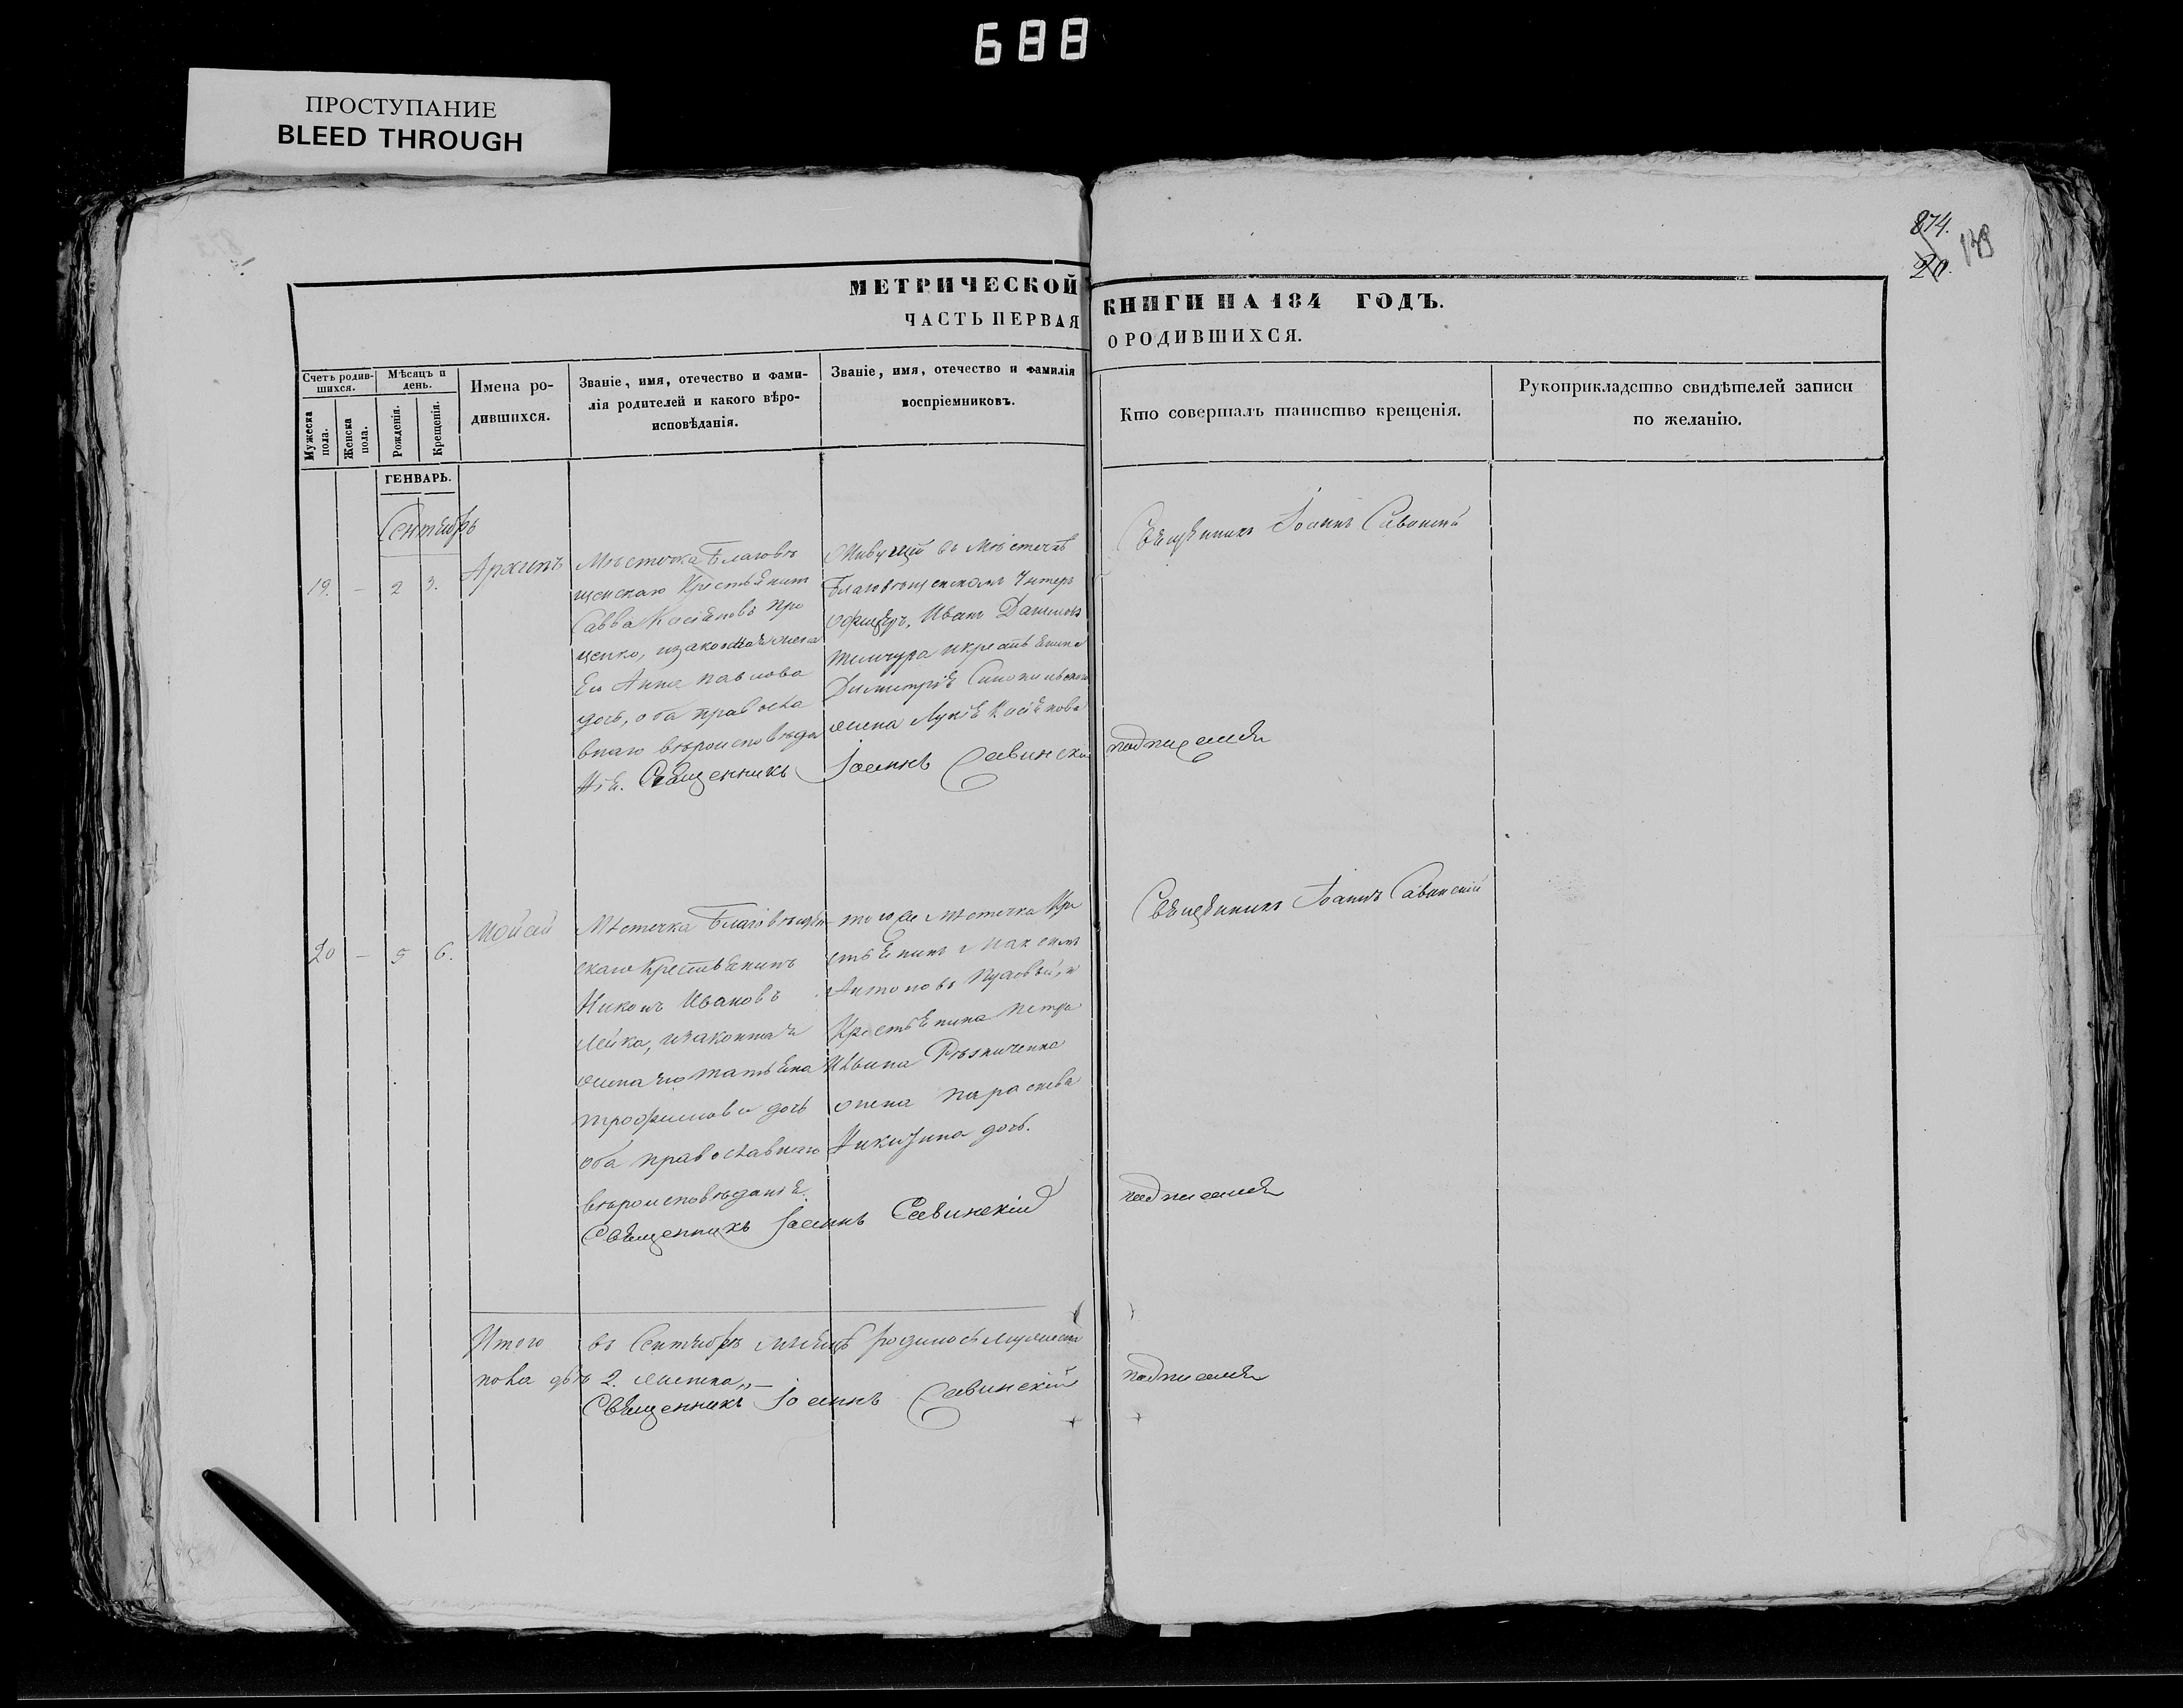 688
ПРОСТУПАНИЕ
BLEED THROUGH
874.
20.
139
МЕТРИЧЕСКОЙ КНИГИ НА 184 ГОДЪ.
ЧАСТЬ ПЕРВАЯ О РОДИВШИХСЯ.
Счетъ родив-
шихся.
Мужеска
пола.
Женска
пола.
Мѣсяцъ и
день.
Рожденія.
Крещенія.
Имена ро-
дившихся.
Званіе, имя, отечество и фами-
лія родителей и какого вѣро-
исповѣданія.
Званіе, имя, отечество и фамилія
воспріемниковъ.
Кто совершалъ таинство крещенія.
Рукоприкладство свидѣтелей записи
по желанію.
ГЕНВАРЬ.
Сентябрь
19. — 2 3.
Архипъ
Мѣстечка Благовѣ
щенскаго Крестьянинъ
Савва Касіановъ
щенко, изаконная жена
Ею Анна Павлова
дочь, оба православ
внаго вѣроисповѣда
нія. Священникъ Іоаннъ Савинскій подписался
Живущій въ Мѣстечкѣ
Благовѣщенскомъ Унтеръ
офицеръ, Иванъ Даниловъ
икрестьянина
Димитрія
жена
Священникъ Іоаннъ Савинскій
20 — 5 6.
Мойсей
Мѣстечка Благовѣщен
скаго Крестьянинъ
Никонъ Ивановъ
Лейка, изаконная
жена его Татьяна
Трофимова дочь
оба православнаго
вѣроисповѣданія.
Священникъ Іоаннъ Савинскій подписался
того же мѣстечка Кре
стьянинъ Максимъ
Антоновъ и
Крестьянина Петра
Ивана Рѣзниченка
жена Параскева
Никитина дочь.
Священникъ Іоаннъ Савинскій
Итого въ Сентябрѣ мѣсяцѣ родилось мужеска
пола двѣ 2. женска „—
Священникъ Іоаннъ Савинскій подписался